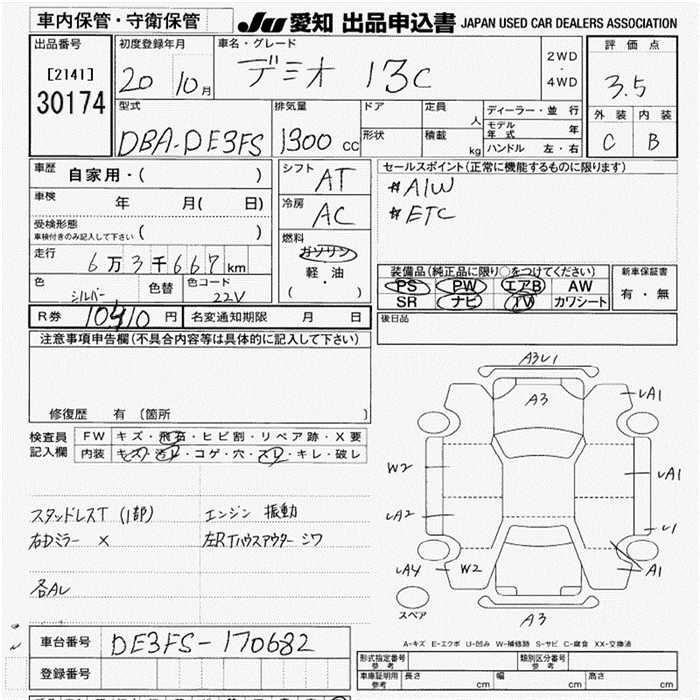 車内保管・守衛保管
JU 愛知 出品申込書 JAPAN USED CAR DEALERS ASSOCIATION
出品番号
[2141]
30174
初度登録年月
20 10月
車名・グレード
デミオ 13C
2WD
・
4WD
評価点
3.5
外装 内装
C B
型式
DBA-DE3FS
排気量
1300 cc
ドア
形状
定員
人
積載
kg
ディーラー・並行
モデル年式 年
ハンドル 左・右
車歴
自家用・( )
車検
年 月( 日)
受検形態
車検付きのみ記入して下さい ( )
走行
6万3千667km
色
シルバー
色替
色コード
22V
シフト
AT
冷房
AC
燃料
ガソリン
軽・油
( )
セールスポイント(正常に機能するものに限ります)
#A/W
#ETC
装備品(純正品に限り○をつけてください)
PS PW エアB AW
SR ナビ TV カワシート
新車保証書
有・無
後日品
R券 10410 円
名変通知期限 月 日
注意事項申告欄(不具合内容等は具体的に記入して下さい)
修復歴 有 (箇所 )
検査員
記入欄
FW キズ・飛石・ヒビ割・リペア跡・X要
内装 キズ・汚レ・コゲ・穴・スレ・キレ・破レ
スタッドレスT (1部) エンジン 振動
右Dミラー × 左Rタハウスアウター シワ
各AU
A3U1
A3
UA1
W2
UA1
UA2
U1
UA4
W2
A1
A3
スペア
A-キズ E-エクボ U-凹み W-補修跡 S-サビ C-腐食 XX-交換済
車台番号
DE3FS-170682
登録番号
形式指定番号
参考
類別区分番号
参考
車庫証明用
参考
長さ cm 幅 cm 高さ cm